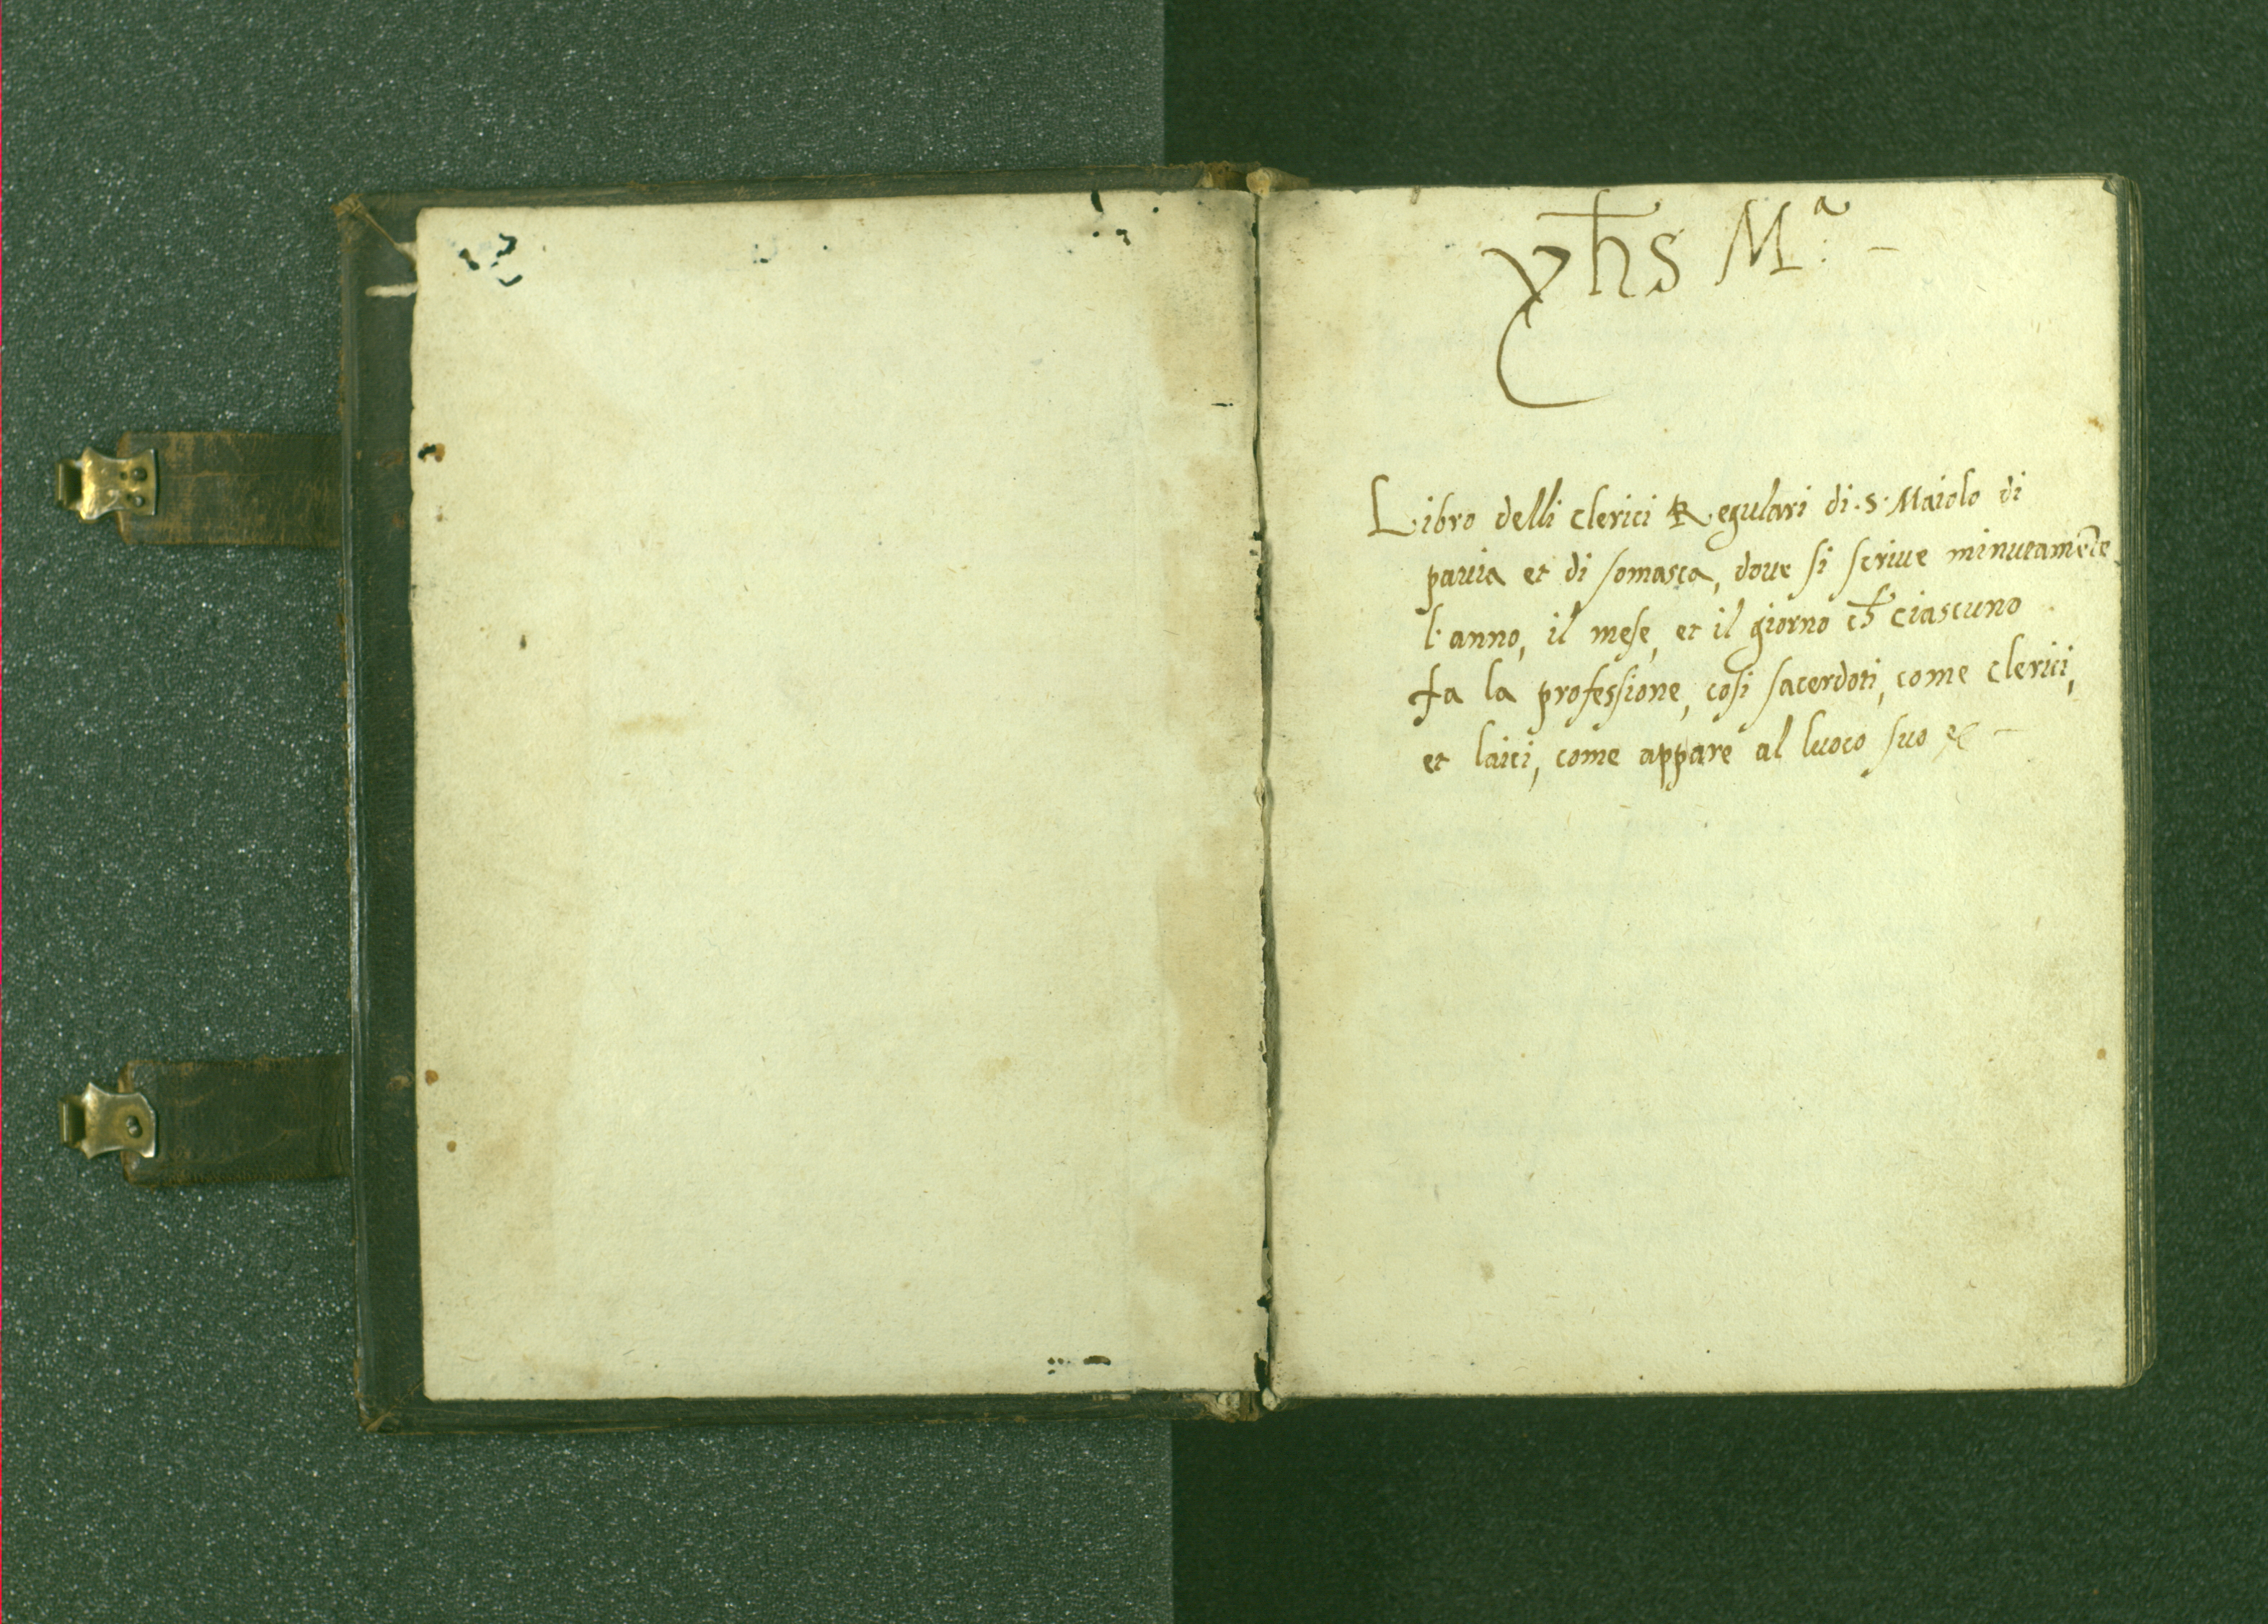 yh̄s M.ª -
Libro delli clerici Regulari di .s. Maiolo di
pauia et di somasca, doue si scriue minutamẽte
l'anno, il mese, et il giorno ch̄ ciascuno
fa la professione, cosi sacerdoti, come clerici,
et laici, come appare al luoco suo &c -